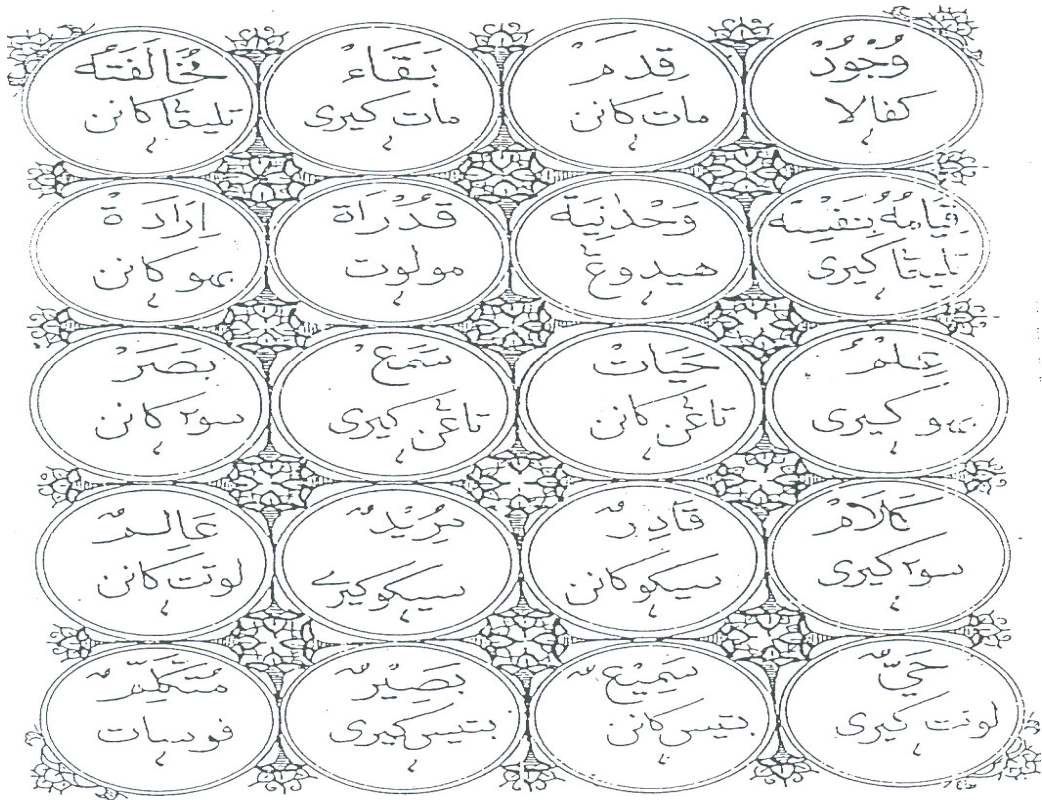 وُجُوْدْ
كفالا
قِدَمْ
مات كانن
بَقَاءْ
مات كيرى
مُخَالَفَتُه
تليڠا كانن
قِيَامُهُ بِنَفْسِهِ
تليڠا كيرى
وَحْدَنِيَة
هيدوڠ
قُدْرَاة
مولوت
اِرَادَة
بهو كانن
عِلْمُ
بهو كيرى
حَيَاتْ
تاڠن كانن
سَمَعْ
تاڠن كيرى
بَصَرْ
سو٢ كانن
كَلَامْ
سو٢ كيرى
قَادِرٌ
سيكو كانن
مُرِيْدٌ
سيكو كيرى
عَالِمٌ
لوتت كانن
حَيٌّ
لوتت كيرى
سَمِيْعٌ
بتيس كانن
بَصِيْرٌ
بتيس كيرى
مُتَكَلِّمٌ
فوسات